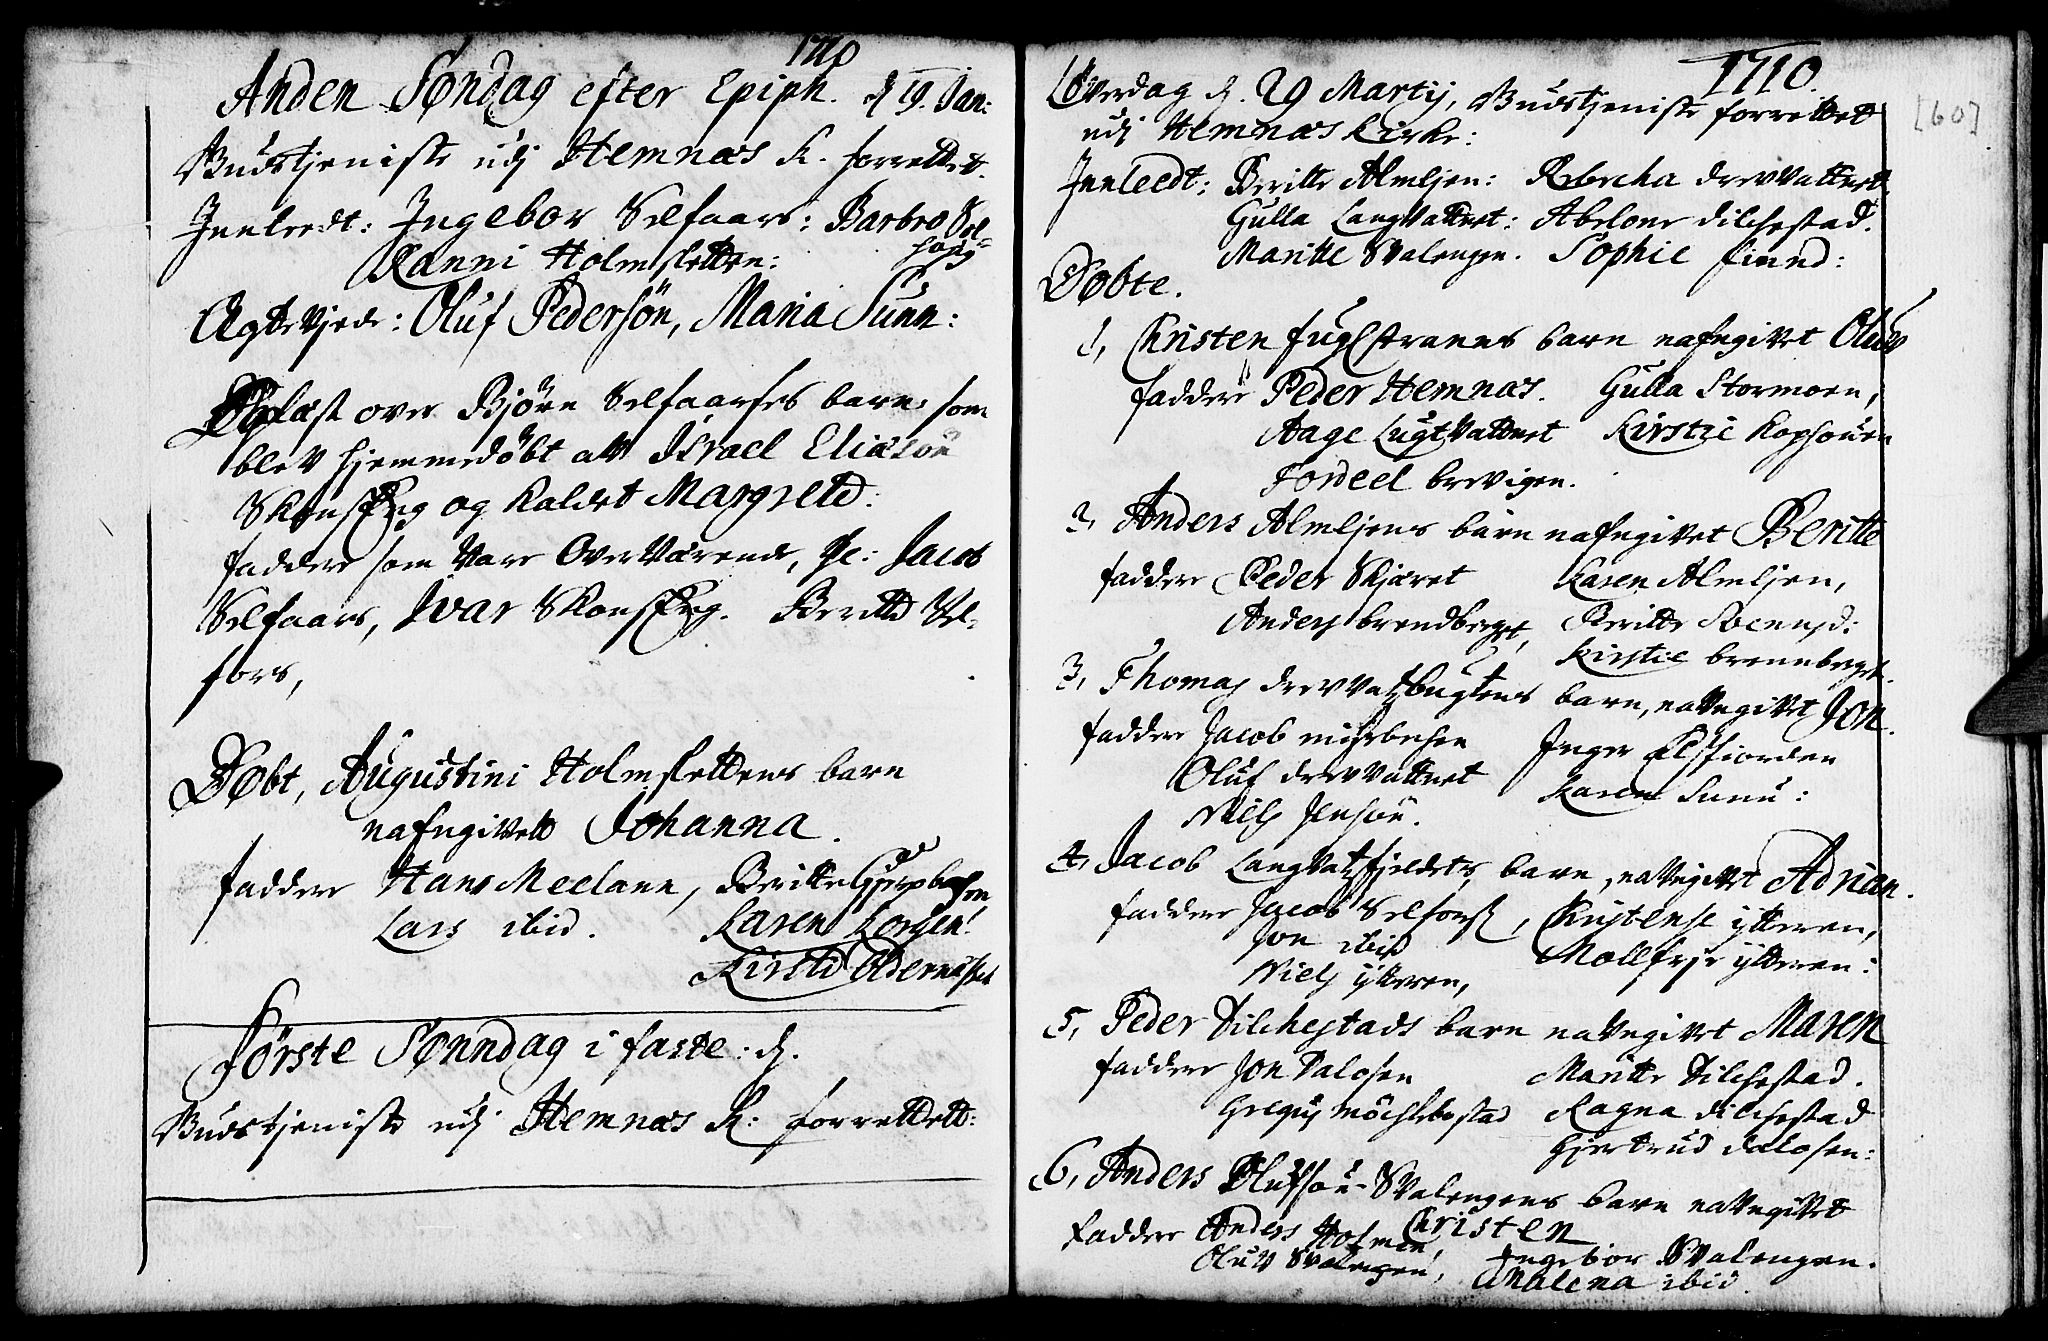 1710
Anden Søndag efter Epiph. d 19. Jan:
Gudstjeniste udj Hemnæs K. forrettet.
Innleedt: Ingebor Selfaars: Barbro Sel=
haug
Ranni Holmsletten:
Agtevjede: Oluf Pedersøn, Maria Sunn:
Oplæst over Bjørn Selfaarses barn, som
blev hjemmedøbt aff Israel Eliasøn
Skonseng og kaldet Margrete:
faddere som vare Overværende, Je: Jacob
Selfaars, Ivar Skonseng. Beritte Sel-
fors,
Døbt, Augustini Holmslettens barn
nafngivett Johanna.
faddere Hans Meelann, Beritte
Lars ibid. Karen Korgen!
Kirste Oldernæsset
Første Sønndag i faste: d.
Gudstjeniste udj Hemnæs K: forrettett:
1710.
[60]
Løverdag d. 29 Martij, Gudstjeniste forrettet
udj Hemnæs Kirke:
Innleedt: Beritte Almljen: Rebecha drevvattnet
Gulla Langvattnet: Abelone dilchestad.
Maritte Svalengen. Sophie finnd:
Døbte.
1, Christen fuglstranns barn nafngivet Oluv
faddere Peder Hemnæs. Gulla Stormoen,
Aage Lugtvattnet Kirstie
Tordeel brevigen.
2, Anders Almljens barn nafngivet Beritte
faddere Peder Skjæret Karen Almljen,
Anders brendberget, Beritte
Kirstie brennberget.
3, Thomas drevvatsbugtens barn, navngivet Jon.
faddere Jacob Inger Elsfiorden
Oluf drevvattnet Karen Sunn:
Niels Jensøn.
4, Jacob Langvatsfjeldets barn, navngivet Adrian.
faddere Jacob Selfors, Christense ytteren,
Jon ibid Mallfrje ytteren:
Niels ytteren,
5, Peder Dilchestads barn navngivet Maren
faddere Jon Dalosen Maritte Dilchestad.
Gregus Møchlebostad Ragna dilchestad
Gjertrud dalosen:
6, Anders Olufsøn Svalengens barn navngivet
Christen
faddere Anders Holmen, Ingebor Svalengen.
Oluv Svalengen, Malena ibid.